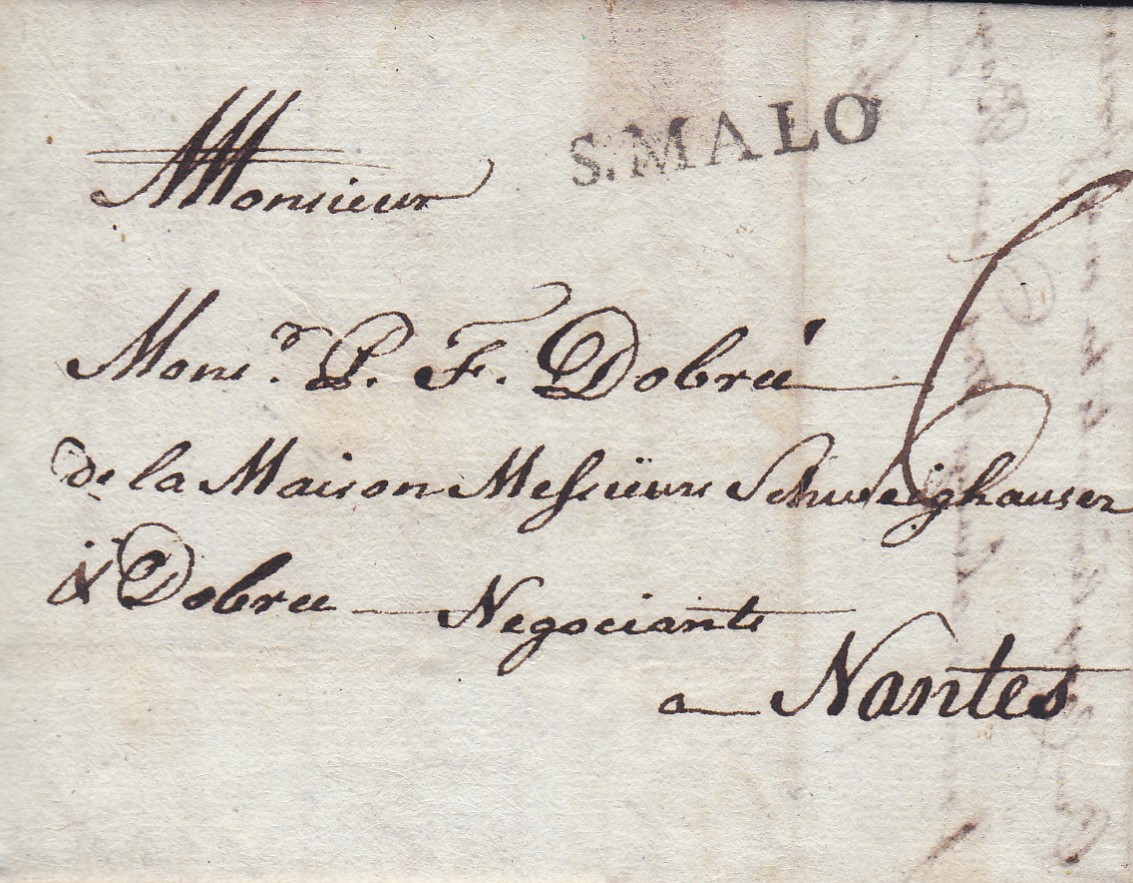 S. MALO
Monsieur
6
Monsr. P. F. Dobrée
de la Maison Messieurs Schweighauser
& Dobree Negociants
a Nantes